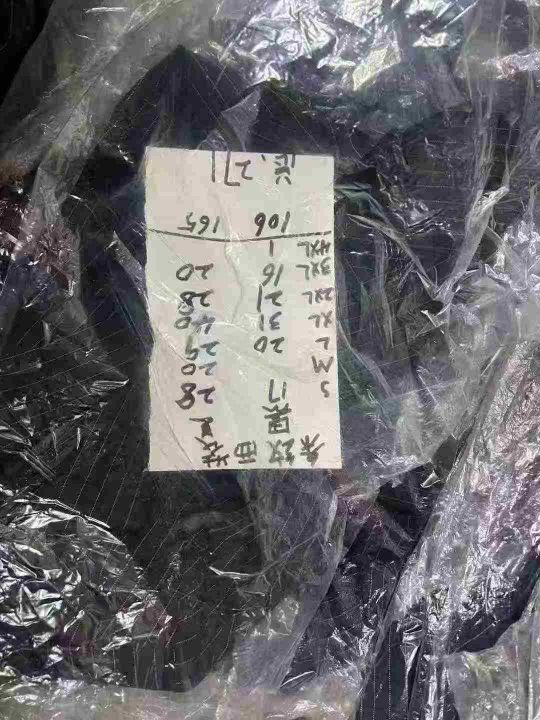 条纹西装
黑
S 17 28
M 20
L 20 29
XL 31 40
2XL 21 28
3XL 16 20
4XL 1
106 165
总: 271